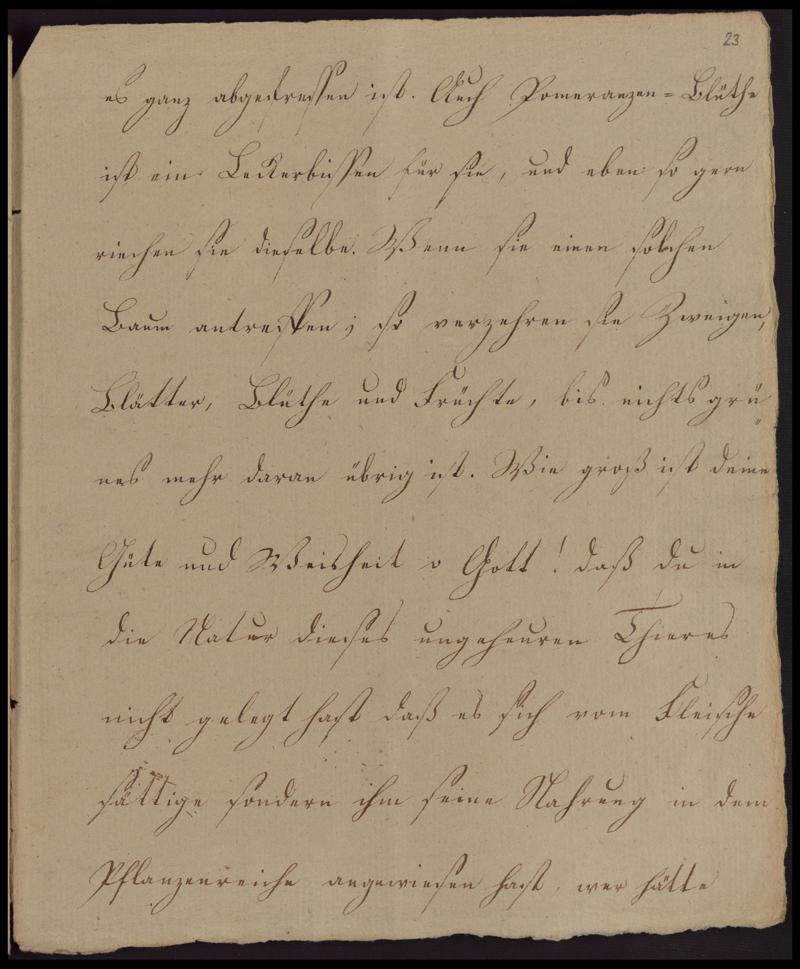 23
es ganz abgefressen ist. Auch Pomeranzen=Blüthe
ist ein Leckerbissen für sie, und eben so gern
riechen sie dieselbe. Wenn sie einen solchen
Baum antreffen; so verzehren sie Zweigen,
Blätter, Blüthe und Früchte, bis nichts grü
nes mehr daran übrig ist. Wie groß ist deine
Güte und Weisheit o Gott! daß du in
die Natur dieses ungeheuren Thieres
nicht gelegt hast daß es sich vom Fleische
sättige sondern ihm seine Nahrung in dem
Pflanzenreiche angewiesen hast. wer hätte